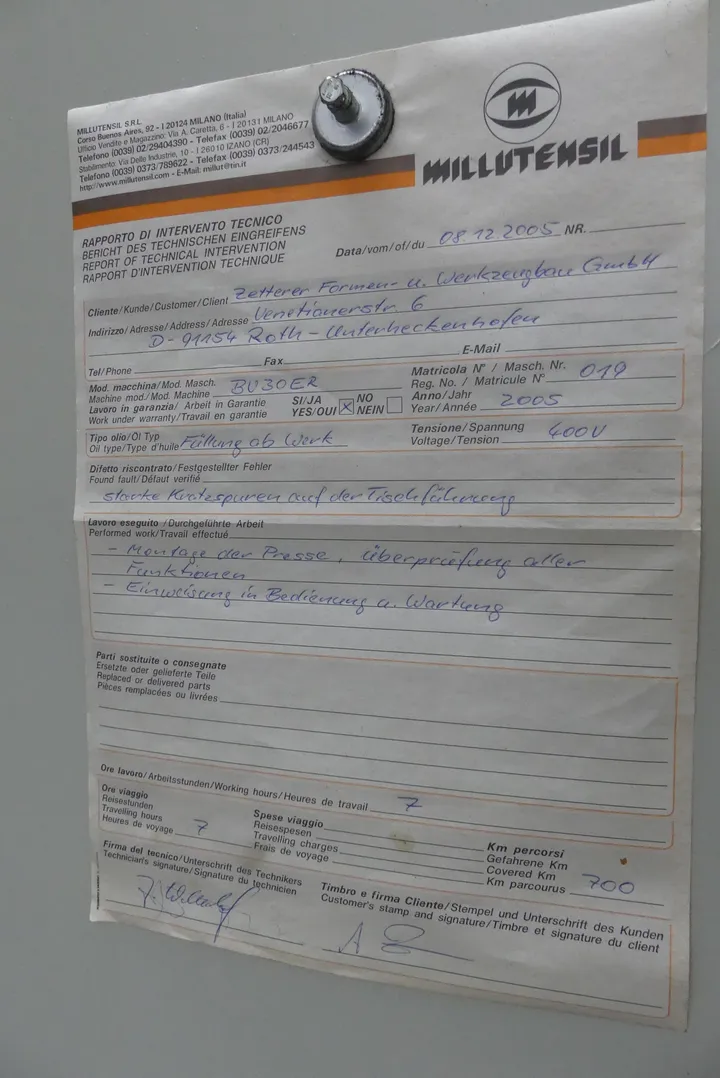 MILLUTENSIL S.R.L.
Corso Buenos Aires, 92 - I 20124 MILANO (Italia)
Ufficio Vendite e Magazzino: Via A. Caretta, 6 - I 20131 MILANO
Telefono (0039) 02/29404390 - Telefax (0039) 02/2046677
Stabilimento: Via Delle Industrie, 10 - I 26010 IZANO (CR)
Telefono (0039) 0373/789622 - Telefax (0039) 0373/244543
http://www.millutensil.com - E-Mail: millut@tin.it
MILLUTENSIL
RAPPORTO DI INTERVENTO TECNICO
BERICHT DES TECHNISCHEN EINGREIFENS
REPORT OF TECHNICAL INTERVENTION
RAPPORT D'INTERVENTION TECHNIQUE
Data/vom/of/du 08.12.2005 NR.
Cliente/Kunde/Customer/Client Zetterer Formen- u. Werkzeugbau GmbH
Indirizzo/Adresse/Address/Adresse Venetianerstr. 6
D-91154 Roth-Unterheckenhofen
Tel/Phone Fax E-Mail
Mod. macchina/Mod. Masch.
Machine mod./Mod. Machine BU30ER
Matricola N° / Masch. Nr.
Reg. No. / Matricule N° 019
Lavoro in garanzia/Arbeit in Garantie
Work under warranty/Travail en garantie
SI/JA
YES/OUI X NO
NEIN
Anno/Jahr
Year/Année 2005
Tipo olio/Öl Typ
Oil type/Type d'huile Füllung ab Werk
Tensione/Spannung
Voltage/Tension 400V
Difetto riscontrato/Festgestellter Fehler
Found fault/Défaut verifié
starke Kratzspuren auf der Tischführung
Lavoro eseguito/Durchgeführte Arbeit
Performed work/Travail effectué
- Montage der Presse, überprüfung aller
Funktionen
- Einweisung in Bedienung u. Wartung
Parti sostituite o consegnate
Ersetzte oder gelieferte Teile
Replaced or delivered parts
Pièces remplacées ou livrées
Ore lavoro/Arbeitsstunden/Working hours/Heures de travail 7
Ore viaggio
Reisestunden
Travelling hours
Heures de voyage 7
Spese viaggio
Reisespesen
Travelling charges
Frais de voyage
Km percorsi
Gefahrene Km
Covered Km
Km parcourus 700
Firma del tecnico/Unterschrift des Technikers
Technician's signature/Signature du technicien
Timbro e firma Cliente/Stempel und Unterschrift des Kunden
Customer's stamp and signature/Timbre et signature du client